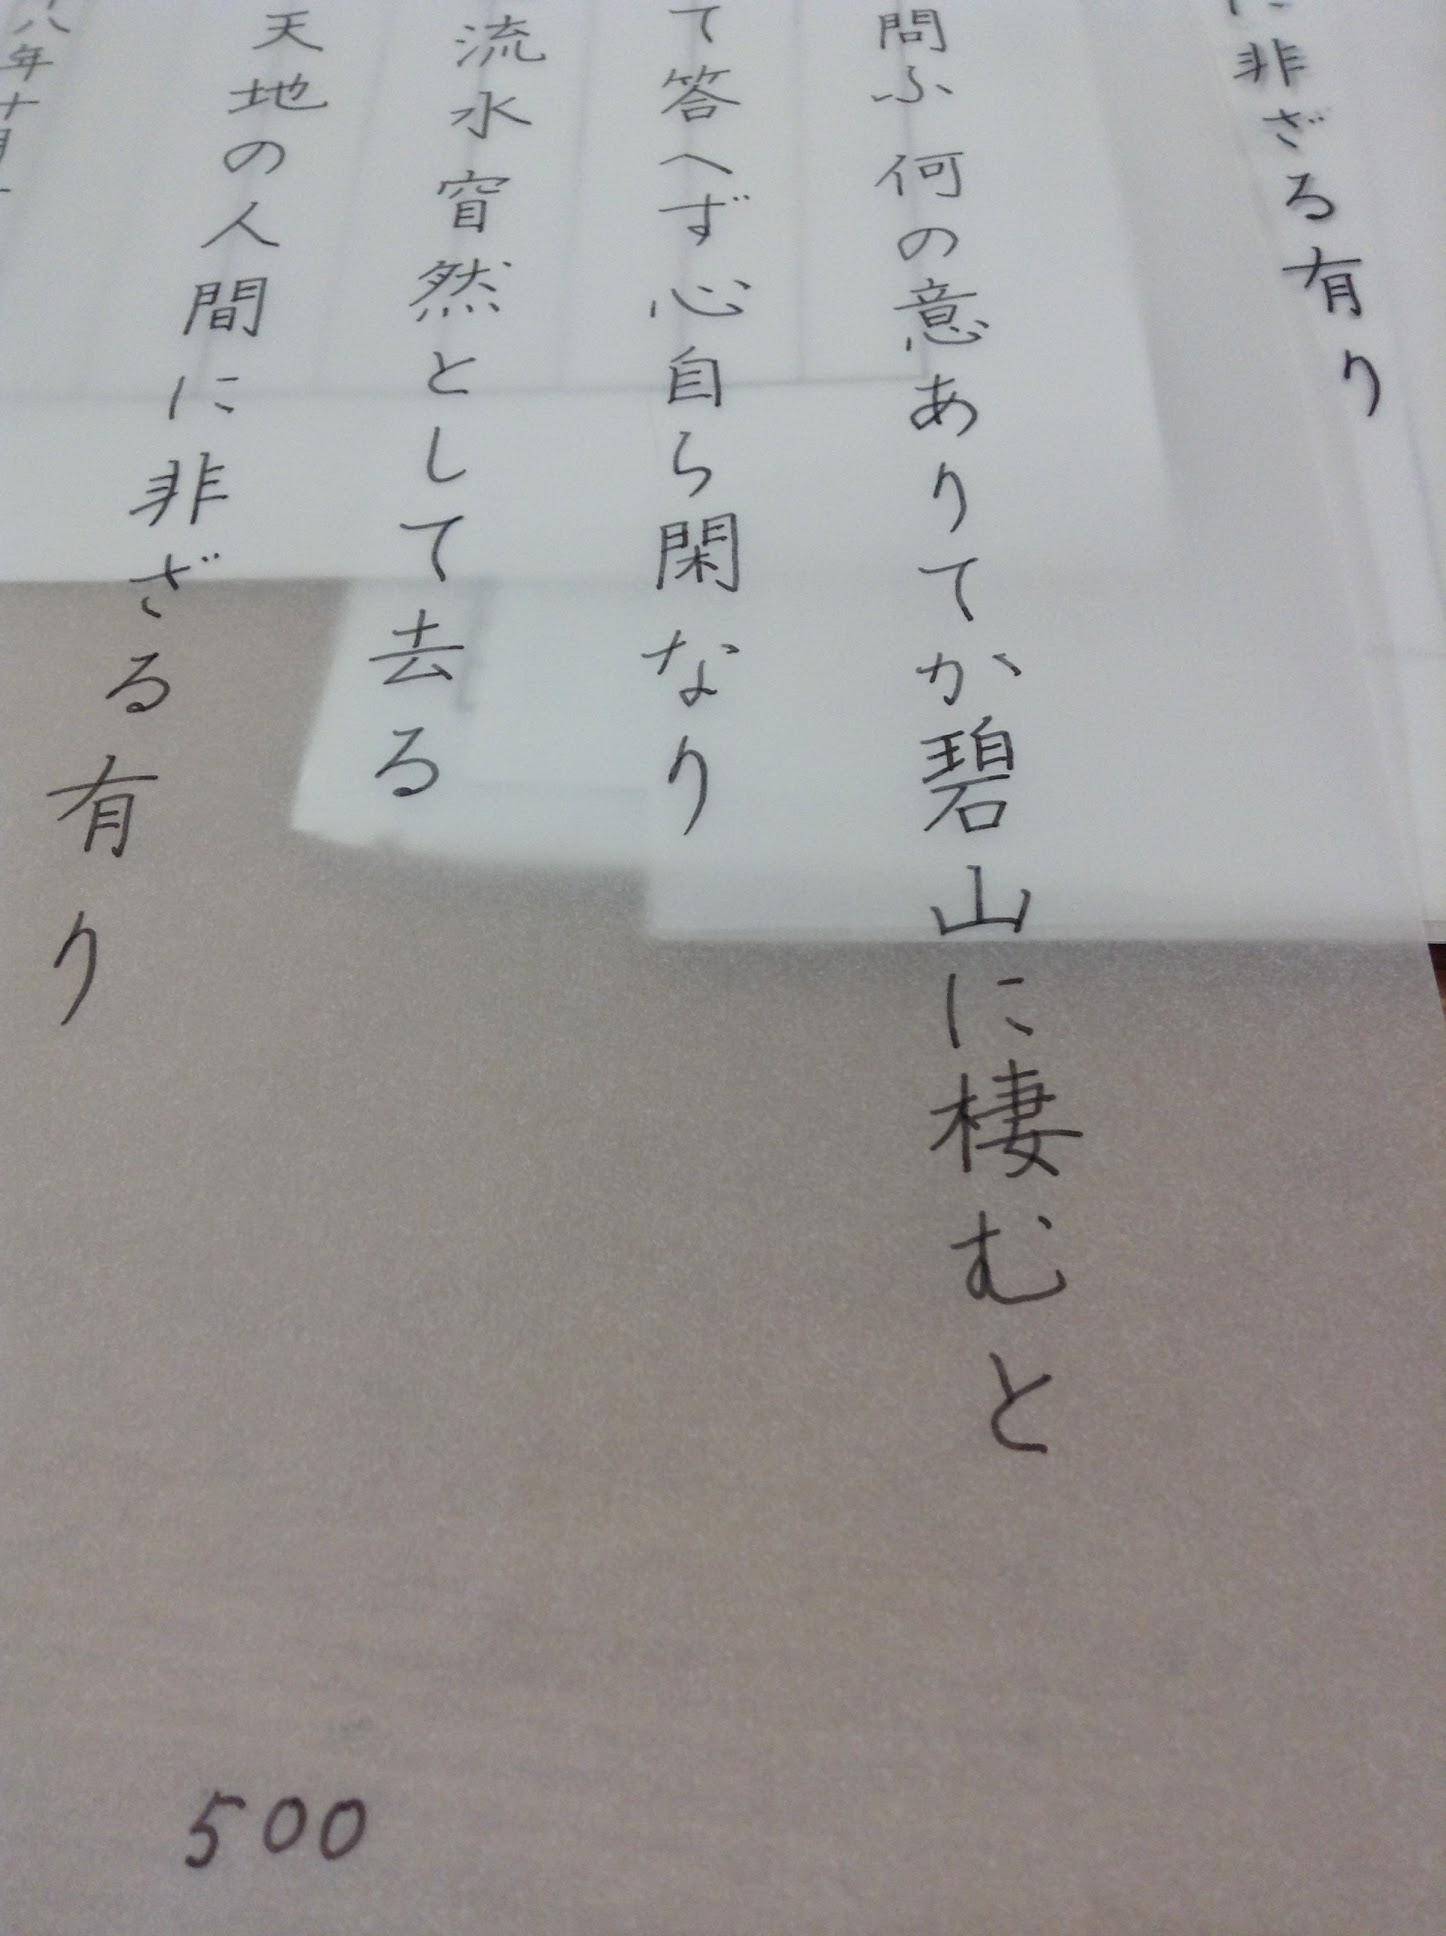 に非ざる有り
問ふ何の意ありてか碧山に棲むと
て答へず心自ら閑なり
流水窅然として去る
天地の人間に非ざる有り
八年十月
500